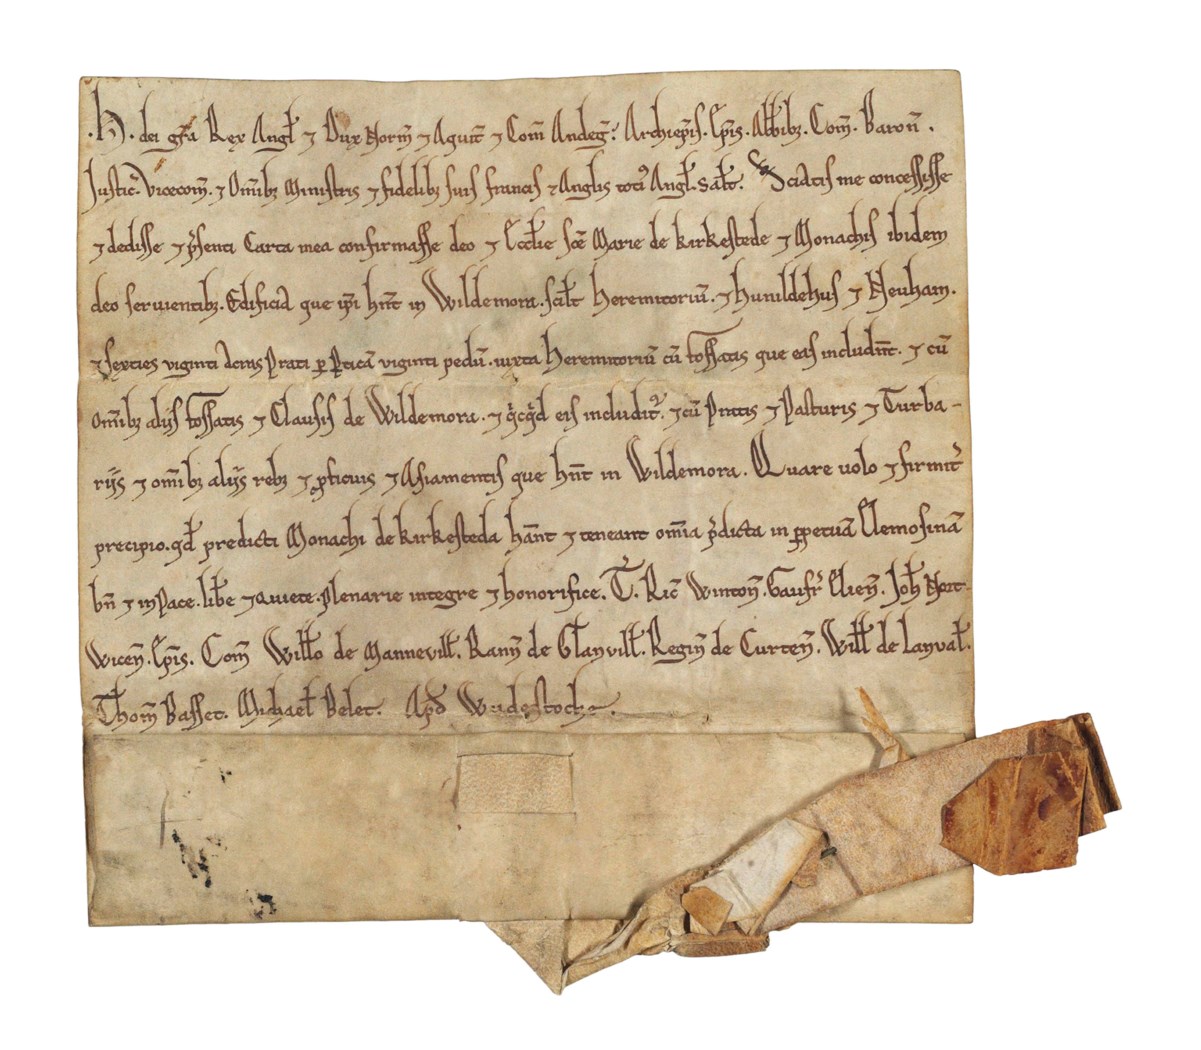 .H. dei gr̃a Rex Angł ⁊ Dux Norm̃ ⁊ Aquit̃ ⁊ Com̃ Andeg̃. Archiep̃is. Ep̃is. Abb̃ibȝ. Com̃. Baron̄.
Justic̃. Vicecom̃. ⁊ Om̃ibȝ Ministris ⁊ fidelibȝ suis francis ⁊ Anglis toti᷒ Angł. Sałt. Sciatis me concessisse
⁊ dedisse ⁊ p̃senti Carta mea confirmasse deo ⁊ Eccłie Sc̃e Marie de kirkestede ⁊ Monachis ibidem
deo seruientibȝ. Edificia que ip̃i hñt in Wildemora. sciłt heremitoriũ. ⁊ hunildehus ⁊ Neuham.
⁊ sexties viginti acras Prati ꝑ Ꝑticã viginti pedũ. iuxta heremitoriũ cũ fossatis que eas includũt. ⁊ cũ
om̃ibȝ alijs fossatis ⁊ Clausis de Wildemora. ⁊ q̃cq̃d eis includit᷑. ⁊ cũ Pratis ⁊ Pasturis ⁊ Turba-
rijs ⁊ om̃ibȝ alijs rebȝ ⁊ ꝓficuis ⁊ Asiamentis que hñt in Wildemora. Quare uolo ⁊ firmit̃
precipio. qđ predicti Monachi de kirkesteda hãnt ⁊ teneant om̃ia p̃dicta in ꝑpetuã Elemosinã
bñ ⁊ in Pace. libe ⁊ Quiete. Plenarie integre ⁊ honorifice. T̃. Ric̃ Winton̄. Gaufr̃ Elien̄. Joħ Nort-
wicen̄. Ep̃is. Com̃ Wiłło de Manneviłł. Rann̄ de Glanviłł. Regin̄ de Curten̄. Wiłł de Lanvał.
Thom̃ Basset. Michaeł Belet. Apđ Wudestocha.